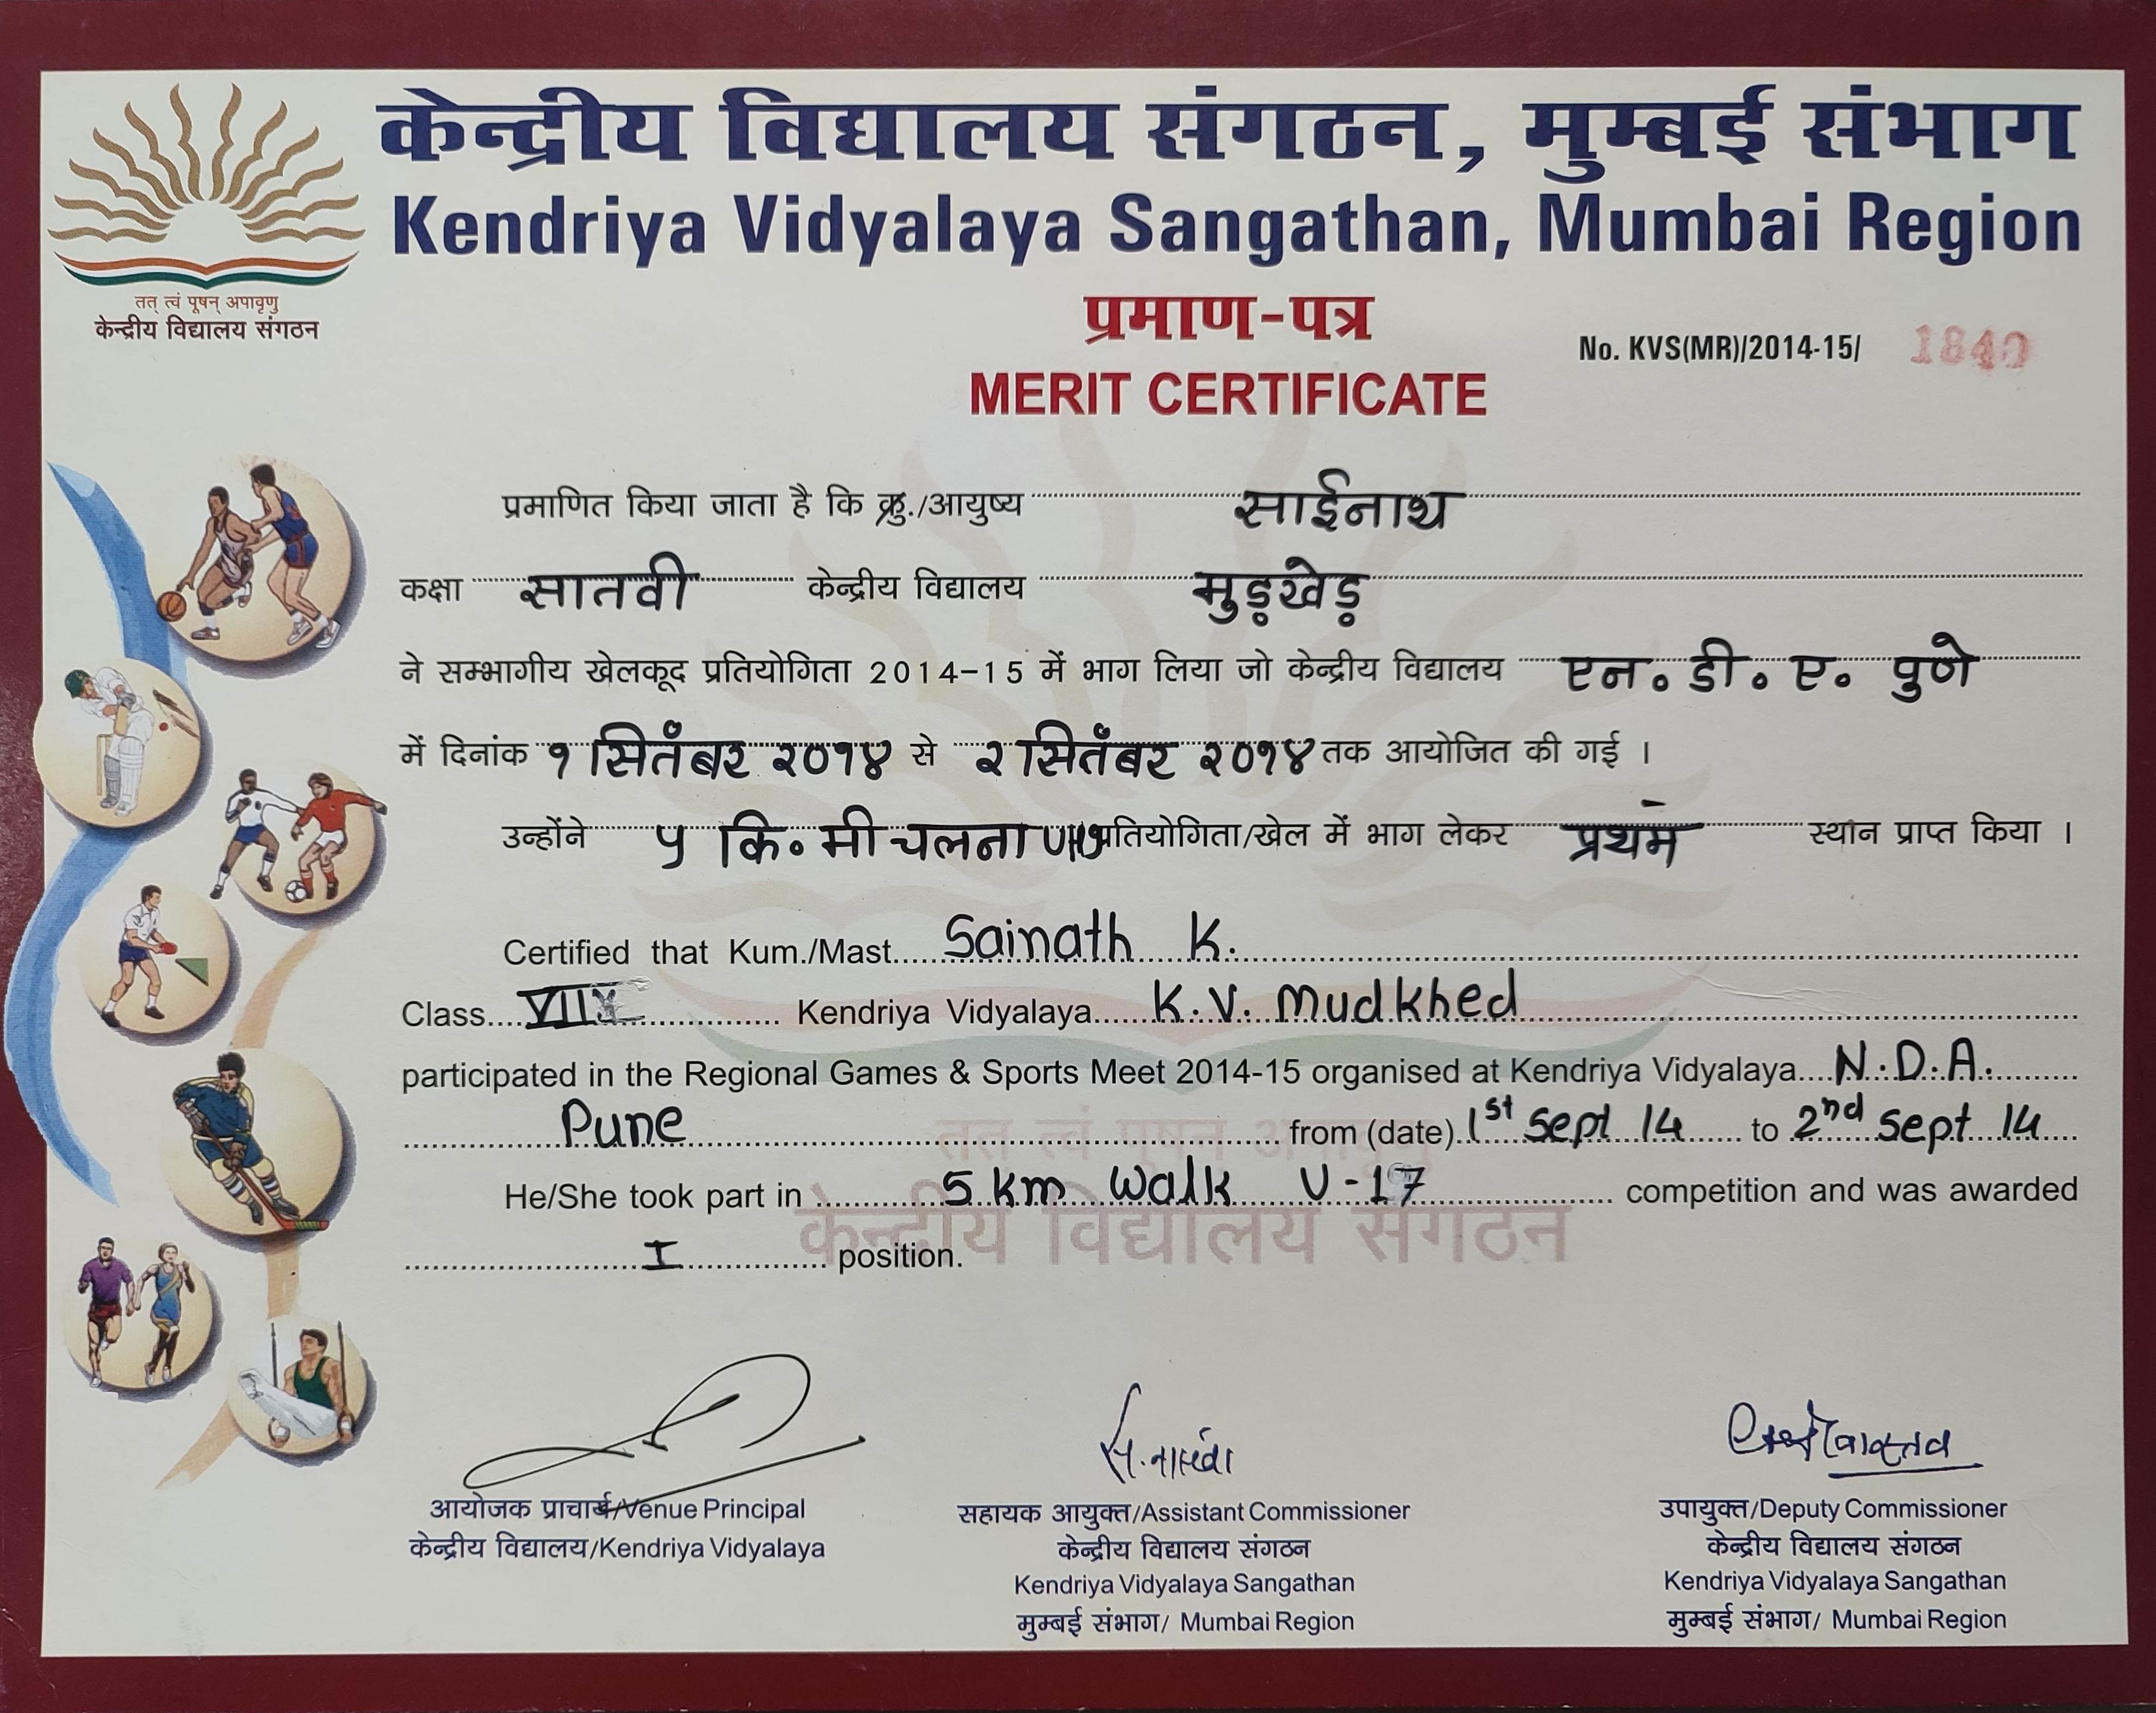 केन्द्रीय विद्यालय संगठन, मुम्बई संभाग
Kendriya Vidyalaya Sangathan, Mumbai Region
तत् त्वं पूषन् अपावृणु
केन्द्रीय विद्यालय संगठन
प्रमाण-पत्र
No. KVS(MR)/2014-15/ 1840
MERIT CERTIFICATE
प्रमाणित किया जाता है कि कु./आयुष्य साईनाथ
कक्षा सातवी केन्द्रीय विद्यालय मुड़खेड़
ने सम्भागीय खेलकूद प्रतियोगिता 2014-15 में भाग लिया जो केन्द्रीय विद्यालय एन. डी. ए. पुणे
में दिनांक १ सितंबर २०१४ से २ सितंबर २०१४ तक आयोजित की गई ।
उन्होंने ५ कि. मी चलना प्रतियोगिता/खेल में भाग लेकर प्रथम स्थान प्राप्त किया ।
Certified that Kum./Mast. Sainath K.
Class VII Kendriya Vidyalaya K.V. Mudkhed
participated in the Regional Games & Sports Meet 2014-15 organised at Kendriya Vidyalaya N.D.A.
Pune from (date) 1st Sept 14 to 2nd Sept 14
He/She took part in 5 km Walk U-17 competition and was awarded
I position.
तत् त्वं पूषन् अपावृणु
केन्द्रीय विद्यालय संगठन
आयोजक प्राचार्य/Venue Principal
केन्द्रीय विद्यालय/Kendriya Vidyalaya
सहायक आयुक्त/Assistant Commissioner
केन्द्रीय विद्यालय संगठन
Kendriya Vidyalaya Sangathan
मुम्बई संभाग/ Mumbai Region
उपायुक्त/Deputy Commissioner
केन्द्रीय विद्यालय संगठन
Kendriya Vidyalaya Sangathan
मुम्बई संभाग/ Mumbai Region